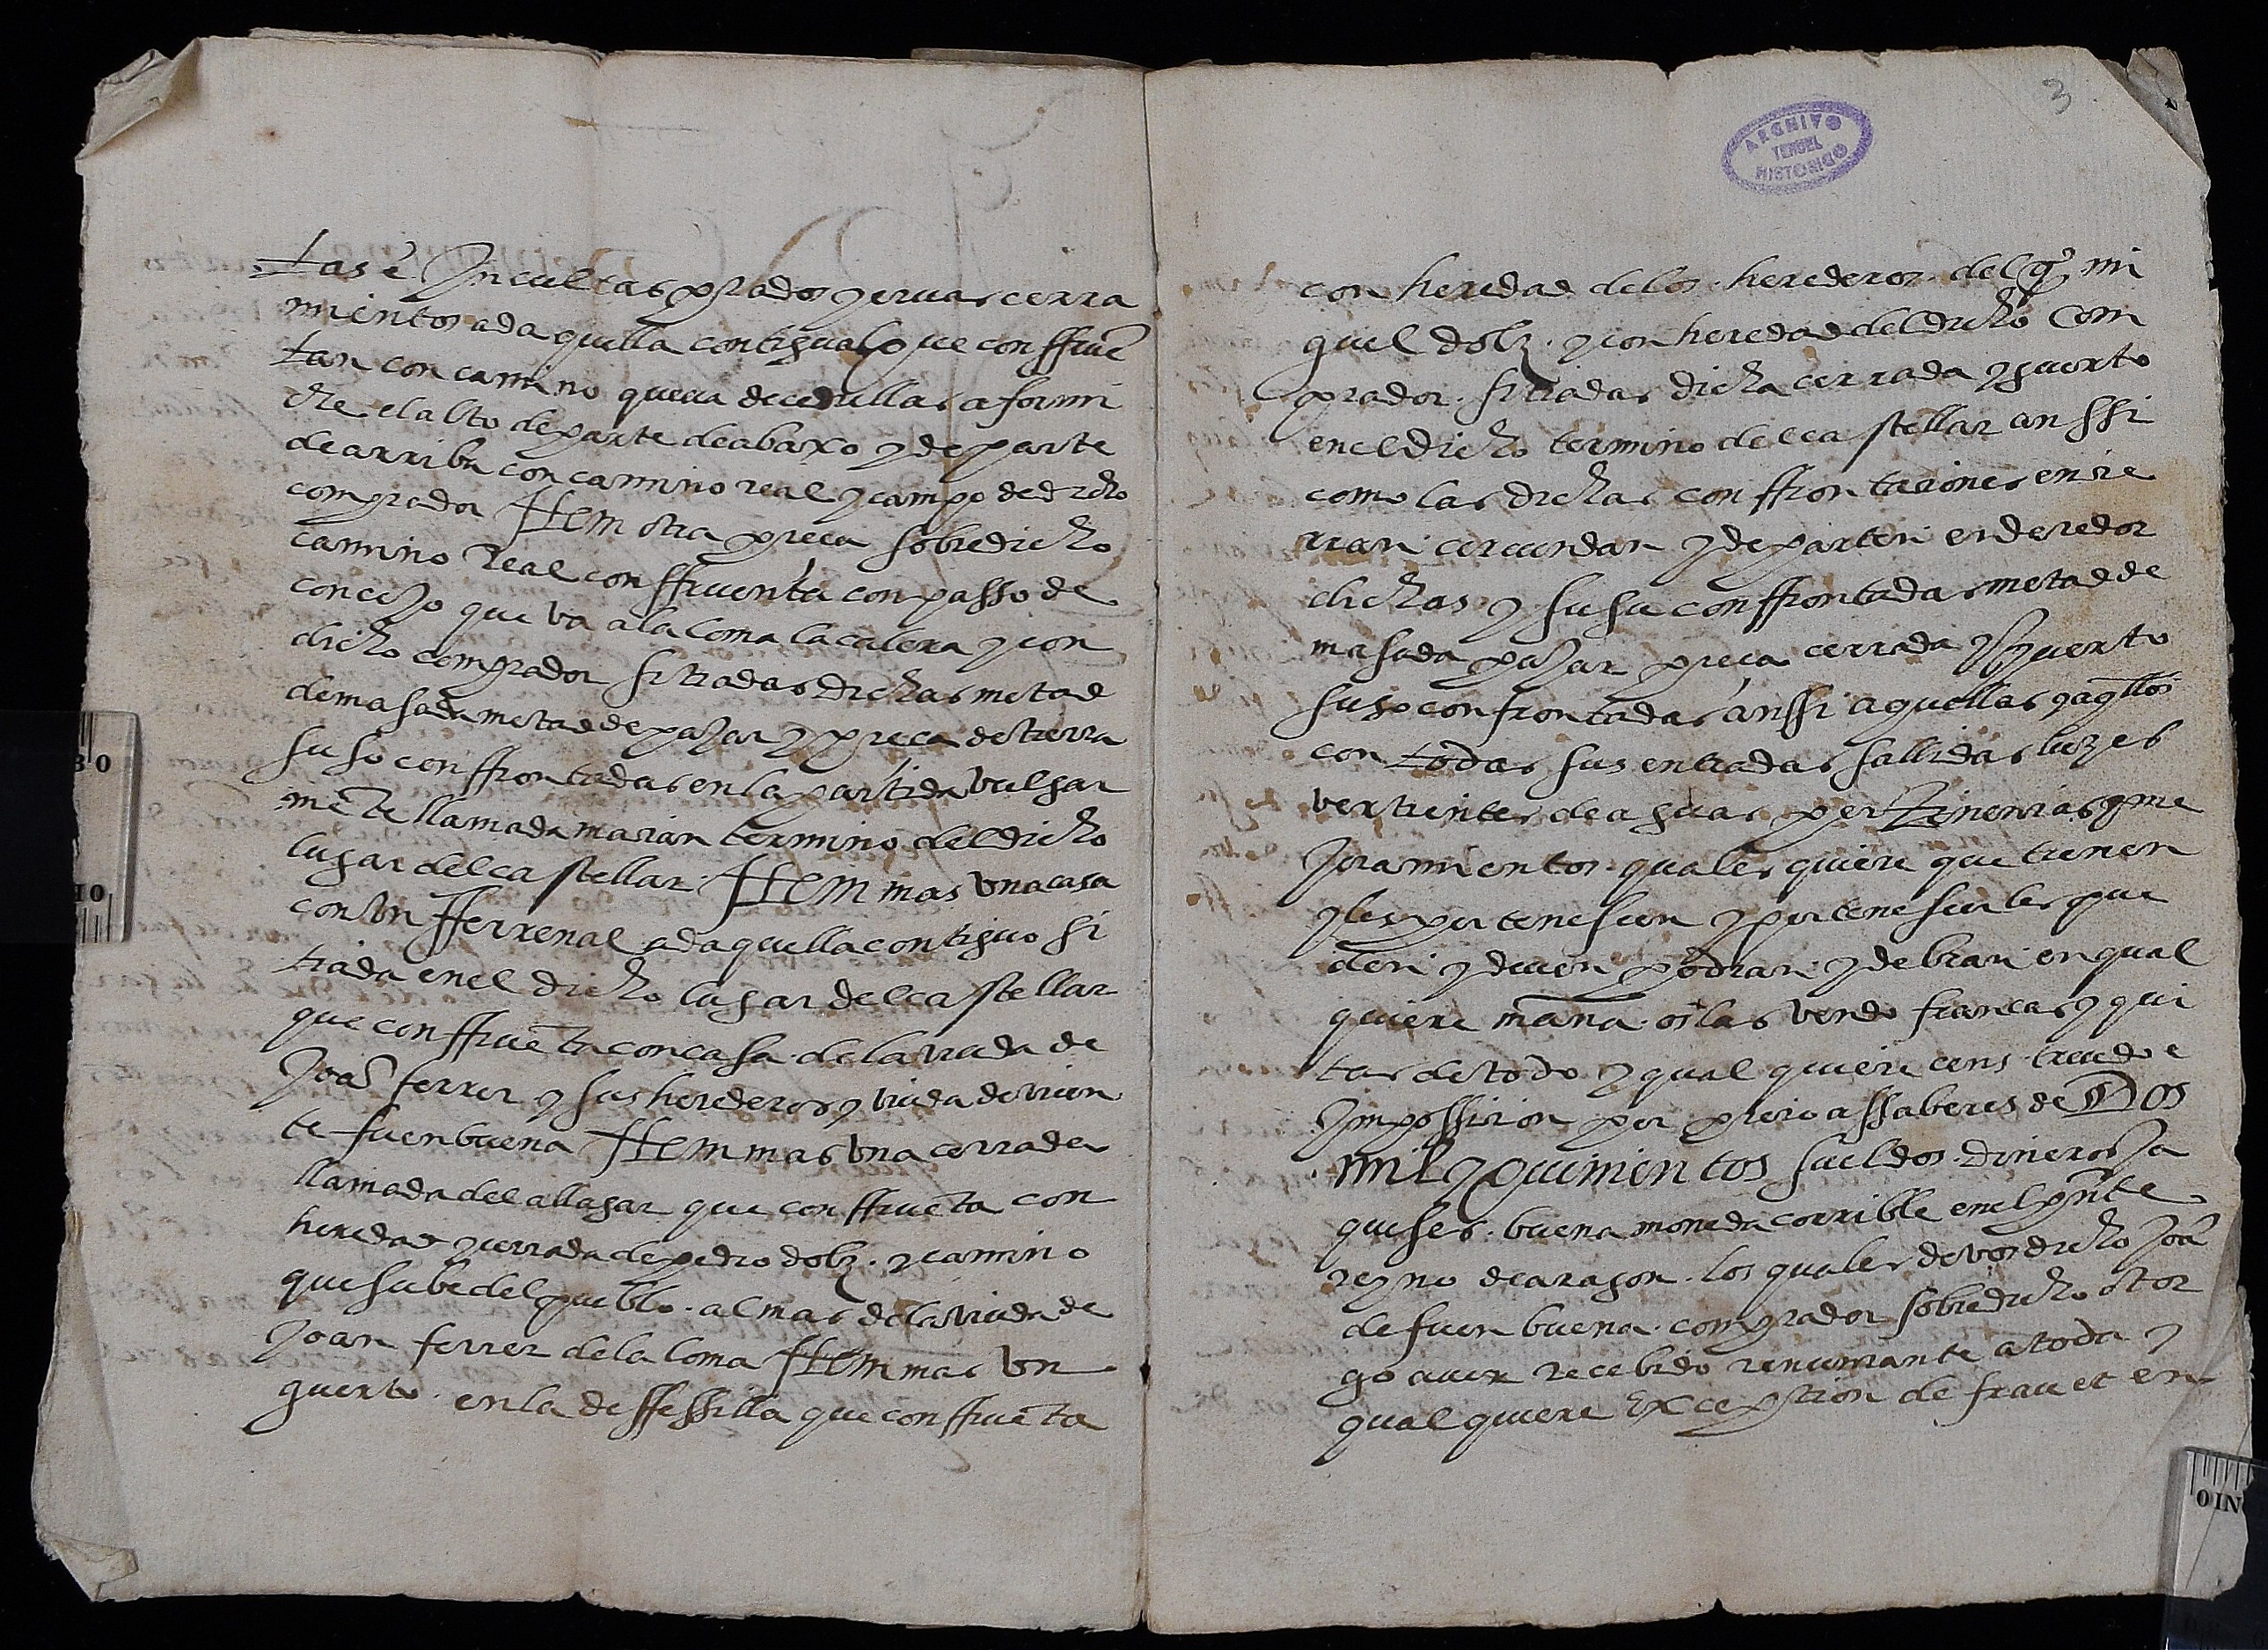 tas é Incultas prados yeruas cerra
mientos ada quella contigual que conffruē
tan con camino queua decedrillas a formi
che el alto de parte deabaxo y de parte
dearriba con camino real y campo dedicho
comprador Item otra pieça sobredicho
camino Real conffruenta con passo de
concejo que va ala loma lacalera y con
dicho comprador sitiadas dichas metad
demasada metad de pajar y pieça detierra
suso conffrontadas enla partida vulgar
mēte llamada marian termino deldicho
lugar delcastellar Item mas vnacasa
con vn fferrenal adaquella contiguo si
tiada enel dicho lugar delcastellar
que conffruēta concasa delaviuda de
Joā ferrer y sus herederos y viuda de vicen
te fuenbuena Item mas vna cerrada
llamada del allagar que conffruēta con
heredad y cerrada de pedro dolz y camino
que sube del pueblo al mas dela viuda de
Joan ferrer dela loma Item mas vn
guerto enla deffessilla que conffruēta
3
ARCHIVO
TERUEL
HISTORICO
con heredad delos herederos del qº mi
guel dolz y con heredad deldicho Com
prador sitiadas dicha cerrada y guerto
eneldicho termino delcastellar anssi
como las dichas conffrontaciones encie
rran circundan y departen enderedor
dichas y susu conffrontadas metad de
masada pajar pieça cerrada y guerto
suso confrontadas anssi aquellas y aqllos
con todas sus entradas sallidas luzes
vertientes deaguas pertinencias y me
joramientos quales quiere que tienen
y les pertenescen y pertenescerles pue
den y deuen podran y debran en qual
quiere mana os las vendo francas y qui
tas detodo y qual quiere cens treudo e
Impossicion por precio assaberes de Dos
mil y quinientos sueldos dineros Ja
queses buena moneda corrible enel pnte
reyno dearagon los quales devos dicho Joā
de fuen buena comprador sobredicho otor
go auer recebido renunciante atoda y
qual quiere Exception de frau et en